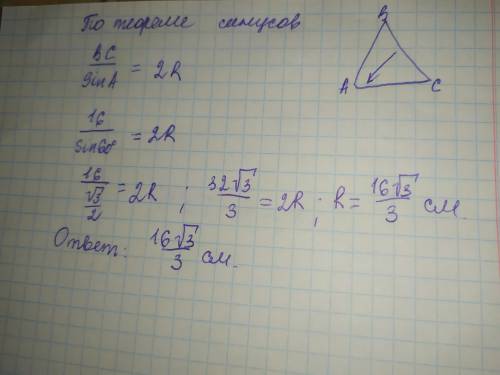 По теореме синусов
BC/sinA = 2R
16/sin60° = 2R
16/(√3/2) = 2R ; 32√3/3 = 2R ; R = 16√3/3 см.
Ответ: 16√3/3 см.
B
A
C